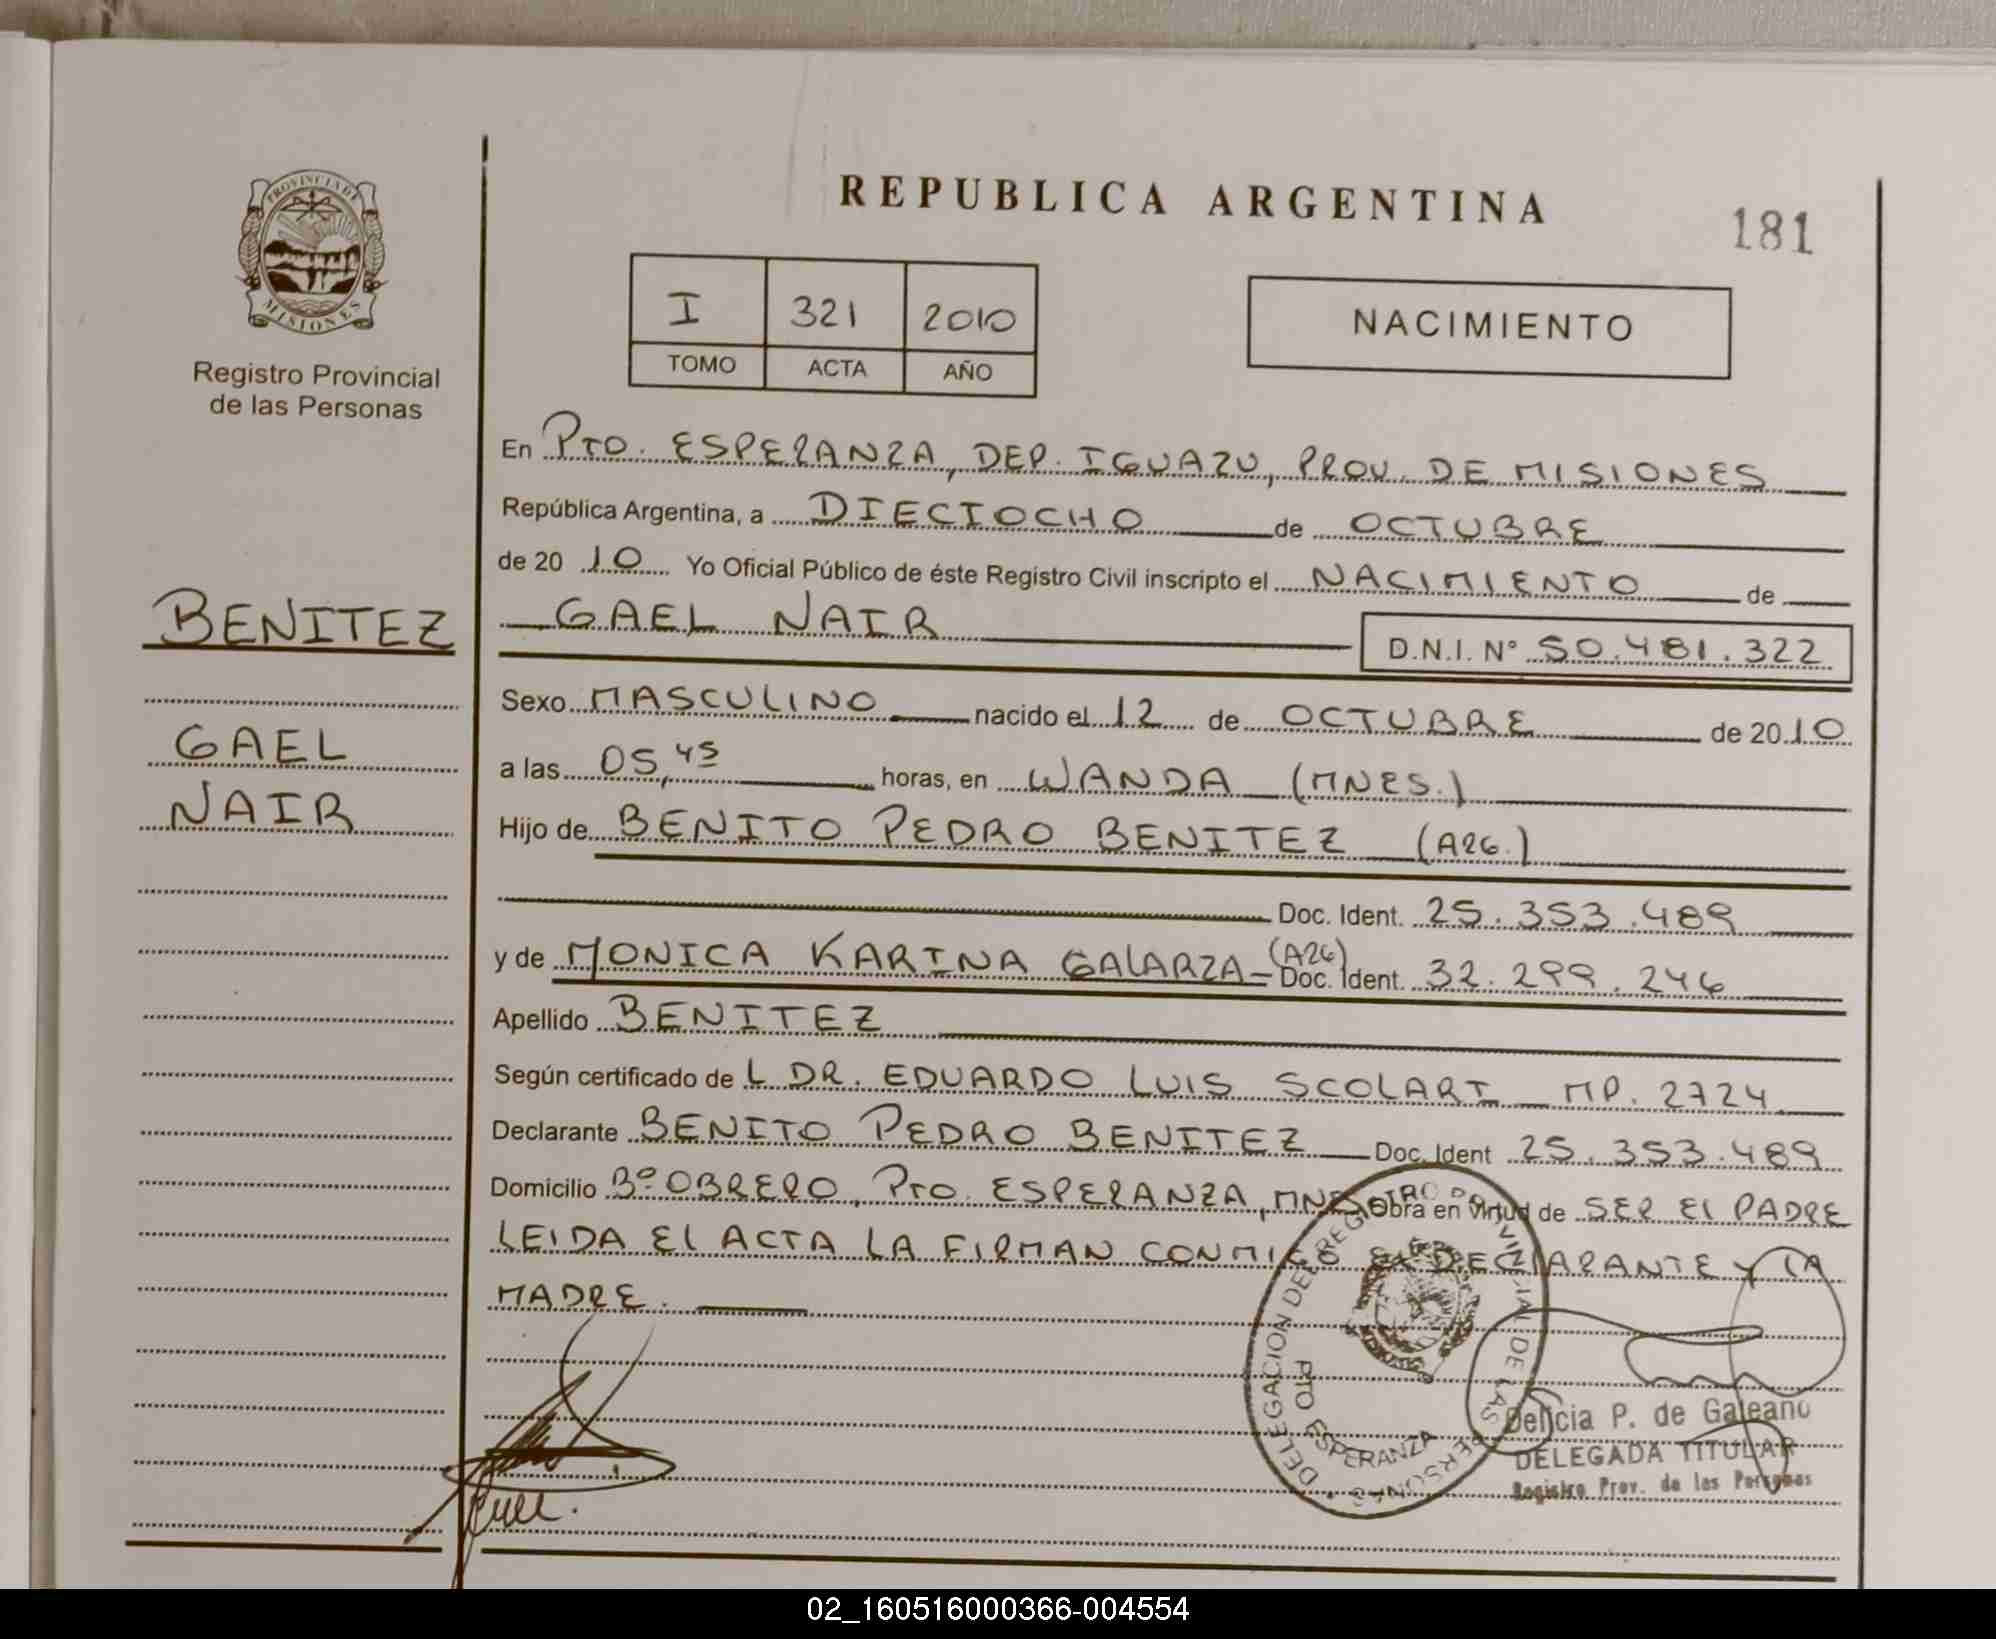 PROVINCIA DE
MISIONES
Registro Provincial
de las Personas
REPUBLICA ARGENTINA
181
I 321 2010
TOMO ACTA AÑO
NACIMIENTO
BENITEZ
GAEL
NAIR
En PTO. ESPERANZA, DEP. IGUAZU, PROV. DE MISIONES
República Argentina, a DIECIOCHO de OCTUBRE
de 20 10 Yo Oficial Público de éste Registro Civil inscripto el NACIMIENTO de
GAEL NAIR D.N.I. N° 50.481.322
Sexo MASCULINO nacido el 12 de OCTUBRE de 20 10
a las 05,45 horas, en WANDA (MNES.)
Hijo de BENITO PEDRO BENITEZ (ARG.)
Doc. Ident. 25.353.489
y de MONICA KARINA GALARZA (ARG) Doc. Ident. 32.299.246
Apellido BENITEZ
Según certificado de L DR. EDUARDO LUIS SCOLARI MP. 2724
Declarante BENITO PEDRO BENITEZ Doc. Ident 25.353.489
Domicilio B° OBRERO, PTO. ESPERANZA, MNES Obra en virtud de SER EL PADRE
LEIDA EL ACTA LA FIRMAN CONMIGO EL DECLARANTE Y LA
MADRE.
DELEGACION DEL REGISTRO PROVINCIAL DE LAS PERSONAS
PTO ESPERANZA
Delicia P. de Galeano
DELEGADA TITULAR
Registro Prov. de las Personas
02_160516000366-004554